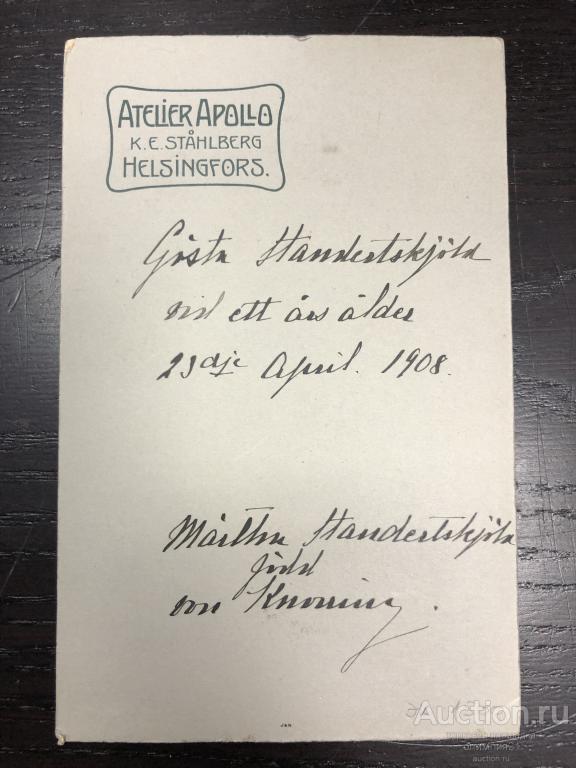 ATELIER APOLLO
K. E. STÅHLBERG
HELSINGFORS.
Gösta Standertskjöld
vid ett års ålder
23dje April. 1908.
Märtha Standertskjöld
född
von Knorring.
Auction.ru
auction.ru